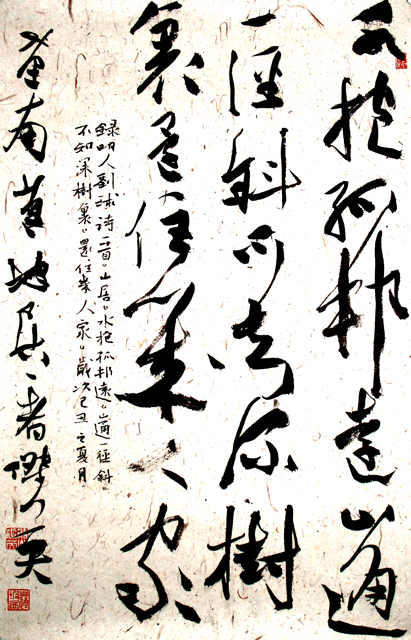 水抱孤邨遠山通
一徑斜不知深樹
裏還住幾人家
錄明人劉球詩一首。山居。水抱孤邨遠。山通一徑斜。
不知深樹裏。還住幾人家。歲次己丑之夏月
南 池居 者傑 英